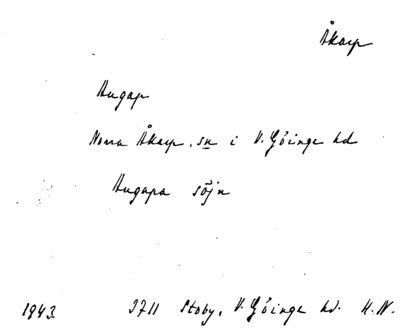 Åkarp
Hugap
Norra Åkarp, sn i V. Göinge hd
Hugapa söjn
1943. 3711 Stoby, V. Göinge hd. H.N.